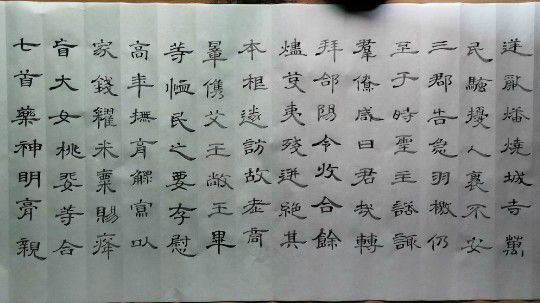 逆亂燔燒城寺萬
民騷擾人裹不安
三郡告急羽檄仍
至于時聖主諮諏
羣僚咸曰君哉轉
拜郃陽令收合餘
燼芟夷殘迸絕其
本根遂訪故老商
量儁艾王敞王畢
等恤民之要存慰
高年撫育鰥寡以
家錢糴米粟賜癃
盲大女桃婓等合
七首藥神明膏親